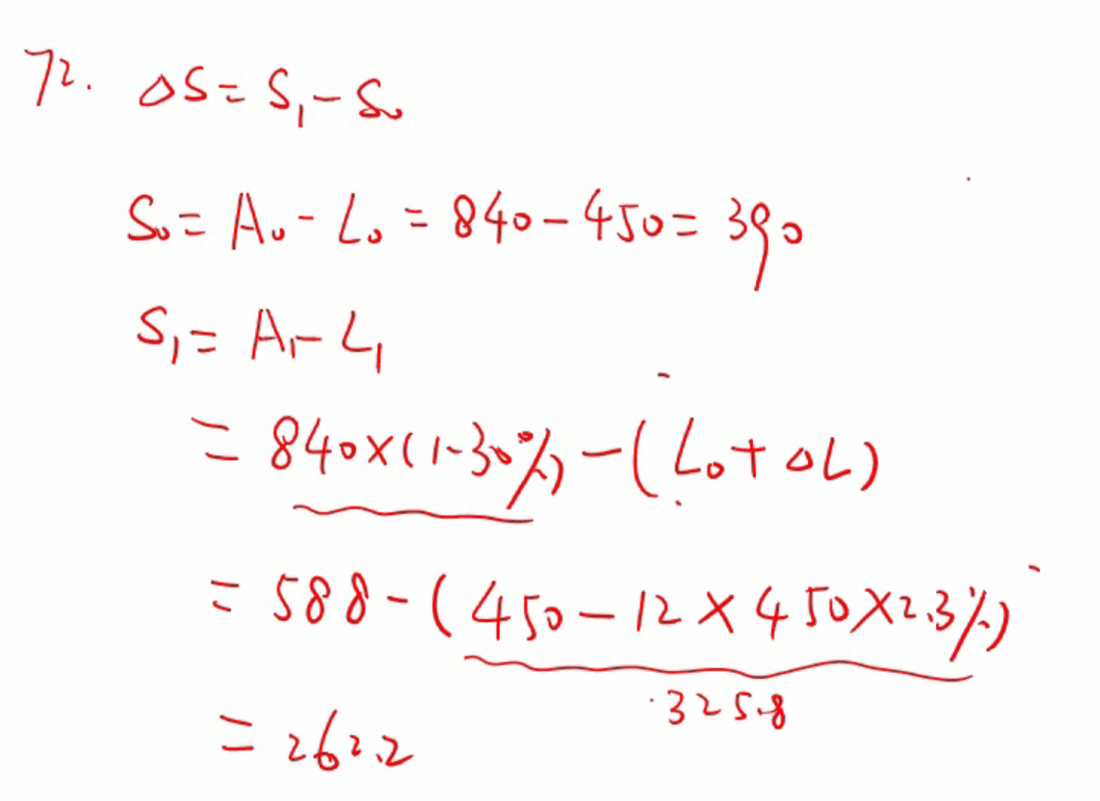 72. ΔS = S₁ - S₀
S₀ = A₀ - L₀ = 840 - 450 = 390
S₁ = A₁ - L₁
= 840×(1-30%) - (L₀ + ΔL)
= 588 - (450 - 12 × 450 × 2.3%)
325.8
= 262.2